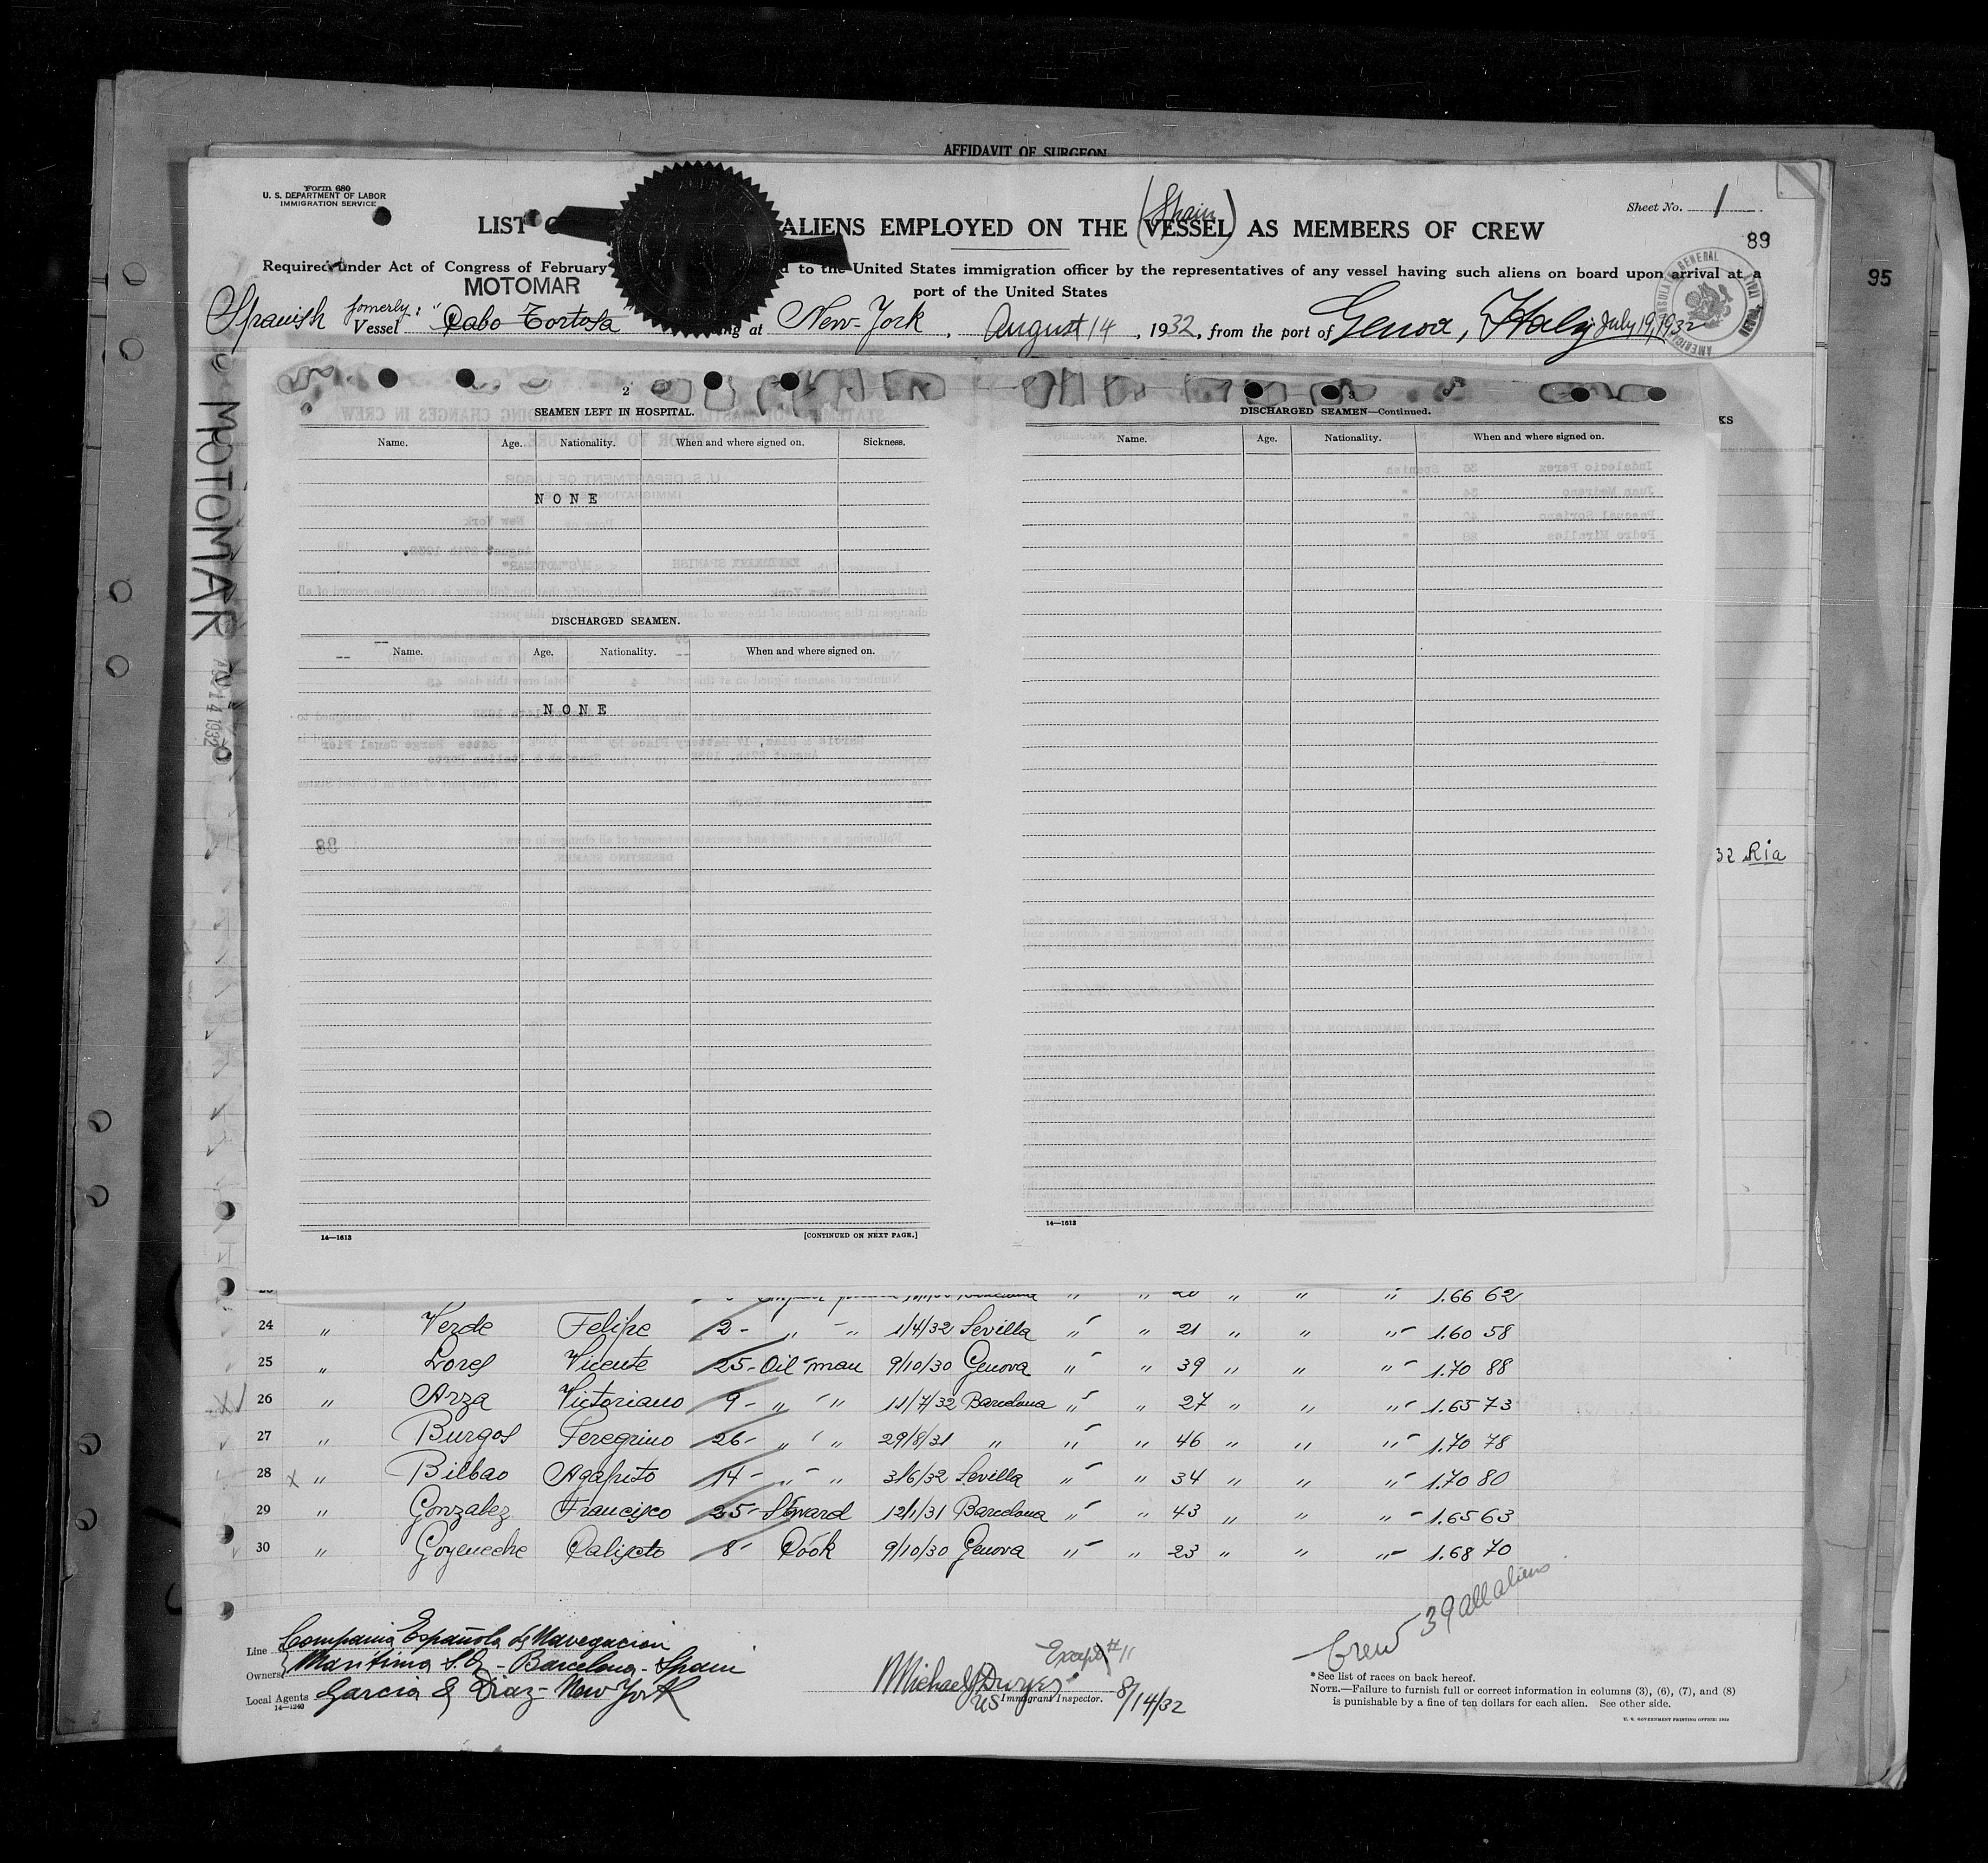 AFFIDAVIT OF SURGEON
Form 680
U. S. DEPARTMENT OF LABOR
IMMIGRATION SERVICE
Sheet No. 1
(Spain)
LIST ALIENS EMPLOYED ON THE VESSEL AS MEMBERS OF CREW
89
95
Required under Act of Congress of February to the United States immigration officer by the representatives of any vessel having such aliens on board upon arrival at a
port of the United States
MOTOMAR
Spanish formerly: Vessel "Cabo Tortosa" at New-York, August 14, 1932, from the port of Genova, Italy July 19, 1932
MOTOMAR
2
SEAMEN LEFT IN HOSPITAL.
Name. Age. Nationality. When and where signed on. Sickness.
NONE
DISCHARGED SEAMEN.
Name. Age. Nationality. When and where signed on.
NONE
14—1613 [CONTINUED ON NEXT PAGE.]
3
DISCHARGED SEAMEN—Continued.
Name. Age. Nationality. When and where signed on.
14—1613
KS
32 Ria
1.66 62
24 " Verde Felipe 2- " " 1/4/32 Sevilla " " 21 " " " 1.60 58
25 " Lores Vicente 25- Oil-man 9/10/30 Genova " " 39 " " " 1.70 88
26 " Arza Victoriano 9- " " 11/7/32 Barcelona " " 27 " " " 1.65 73
27 " Burgos Peregrino 26- " " 29/8/31 " " " 46 " " " 1.70 78
28 x " Bilbao Agapito 14- " " 3/6/32 Sevilla " " 34 " " " 1.70 80
29 " Gonzalez Francisco 25- Steward 12/1/31 Barcelona " " 43 " " " 1.65 63
30 " Goyeneche Calixto 8- Cook 9/10/30 Genova " " 23 " " " 1.68 70
Crew 39 all aliens
Line Compania Española de Navegacion
Owners Maritima S.A. - Barcelona - Spain
Local Agents Garcia & Diaz - New York
14—1240
Except #11
Michael J Dwyer
US Immigrant Inspector. 8/14/32
*See list of races on back hereof.
NOTE.—Failure to furnish full or correct information in columns (3), (6), (7), and (8)
is punishable by a fine of ten dollars for each alien. See other side.